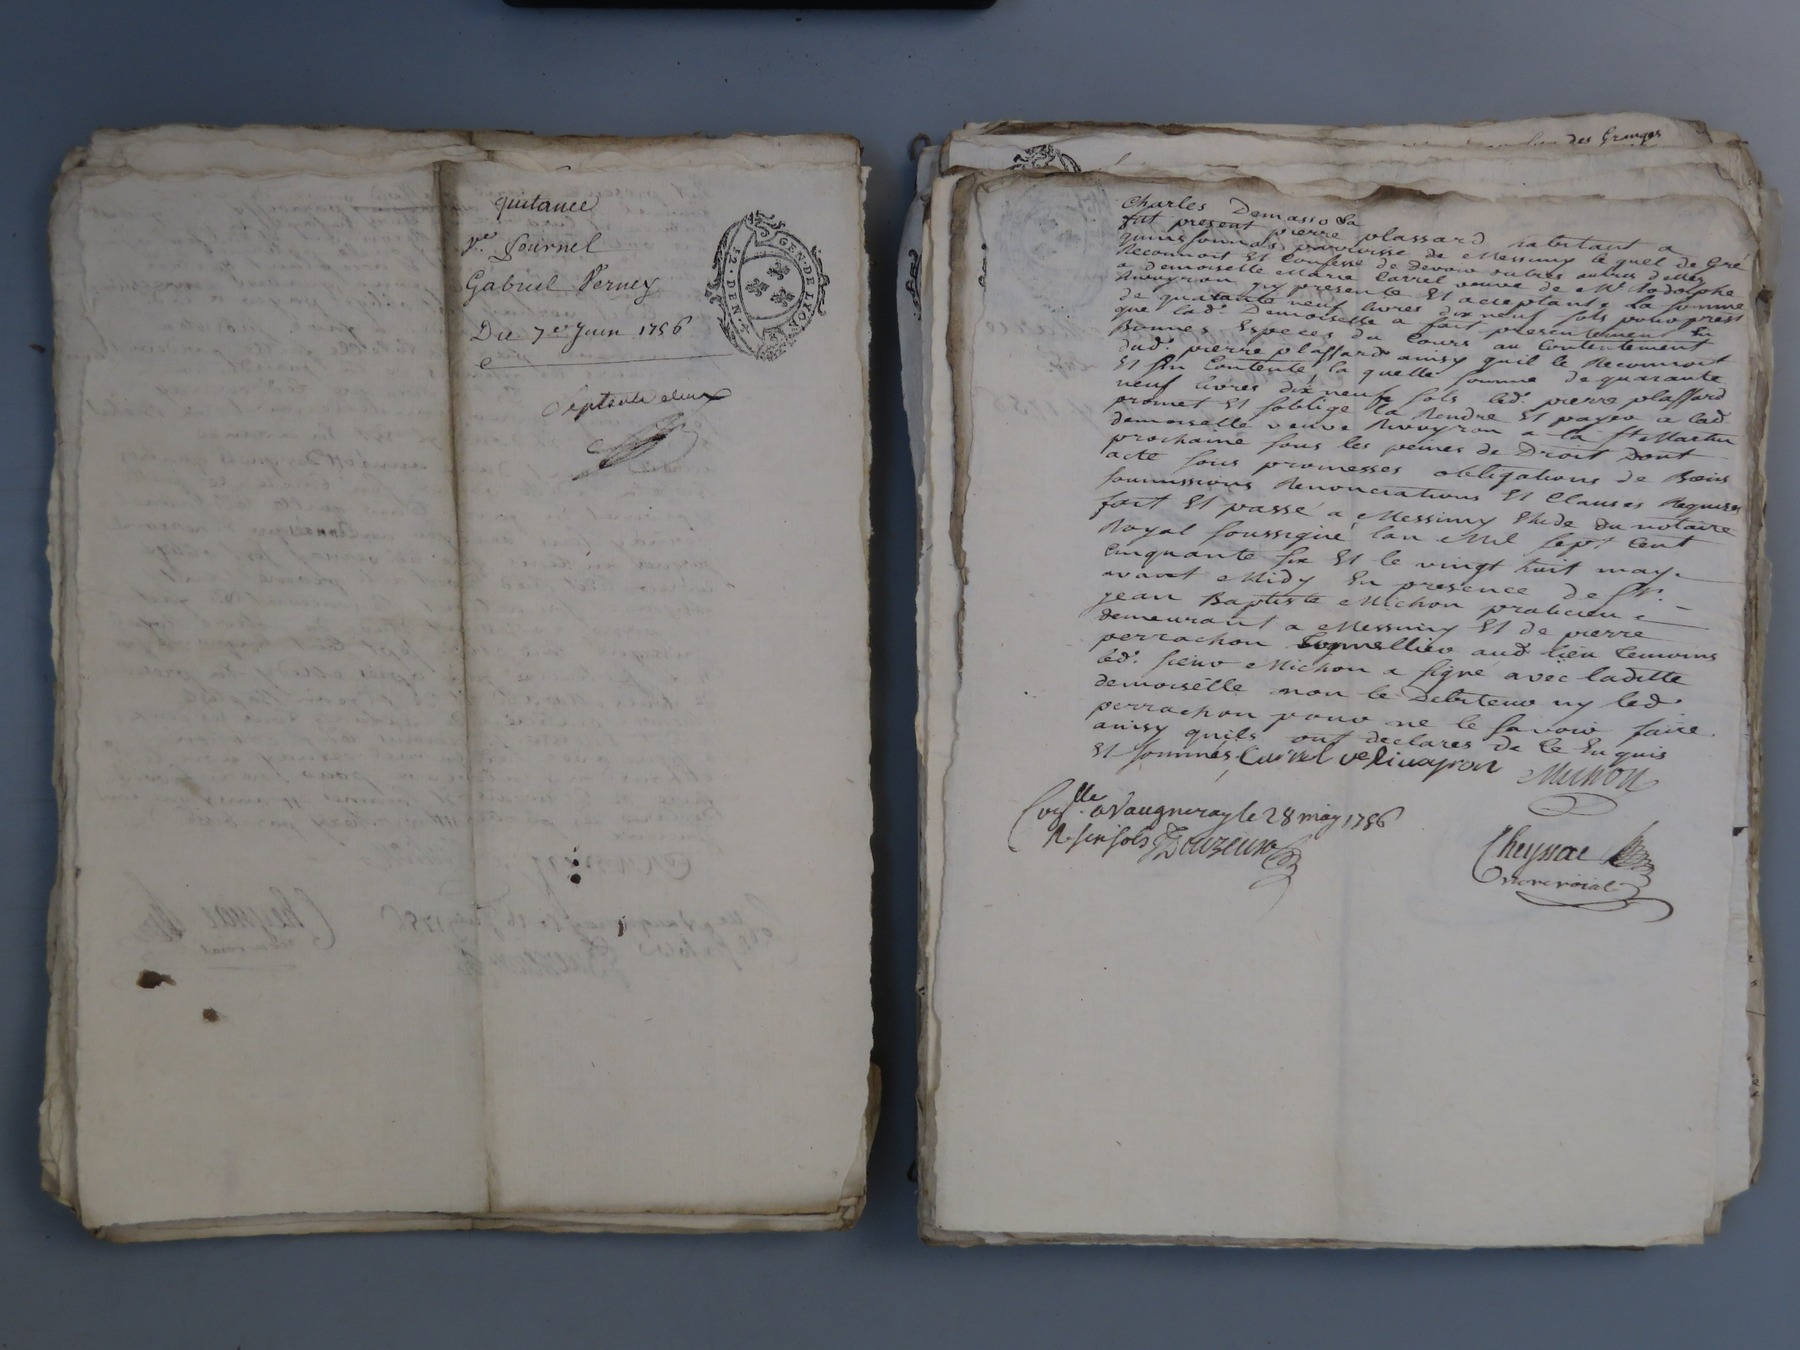 quitance
Ve. Journel
Gabriel Verney
Du 7e Juin 1756
septente deux
GEN. DE LYON
12. DEN
des Granges
Charles Demasso
fut present pierre plassard habitant a
parroisse de Messimy lequel de Gré
Reconnoit Et Confesse de devoir
a demoiselle Marie Carrel veuve de Mr. Rodolphe
Rivoyron jcy presente Et acceptante la somme
de quarante neuf livres dix neuf sols pour prest
que lad. Demoiselle a fait presentement En
Bonnes Especes du Cours au Contentement
dud. pierre plassard ainsy quil le Reconnoit
Et sen Contente la quelle somme de quarante
neuf livres dix neuf sols led. pierre plassard
promet Et soblige la Rendre Et payer a lad.
demoiselle veuve Rivoyron a la St. Martin
prochaine sous les peines de Droit Dont
acte sous promesses obligations de Biens
soumissions Renonciations Et Clauses Requises
fait Et passé a Messimy Etude du notaire
Royal soussigné lan Mil sept Cent
Cinquante six Et le vingt huit may
avant Midy En presence de Sr.
jean Baptiste Michon praticien
demeurant a Messimy Et de pierre
perrachon Tonnellier aud. lieu temoins
led. sieur Michon a signé avec laditte
demoiselle non le Debiteur ny led.
perrachon pour ne le savoir faire
ainsy quils ont declarés de ce Enquis
Et sommés Carrel ve Rivoyron Michon
Conlle. a Vaugneray le 28 may 1756
R. six sols
Cheyssac